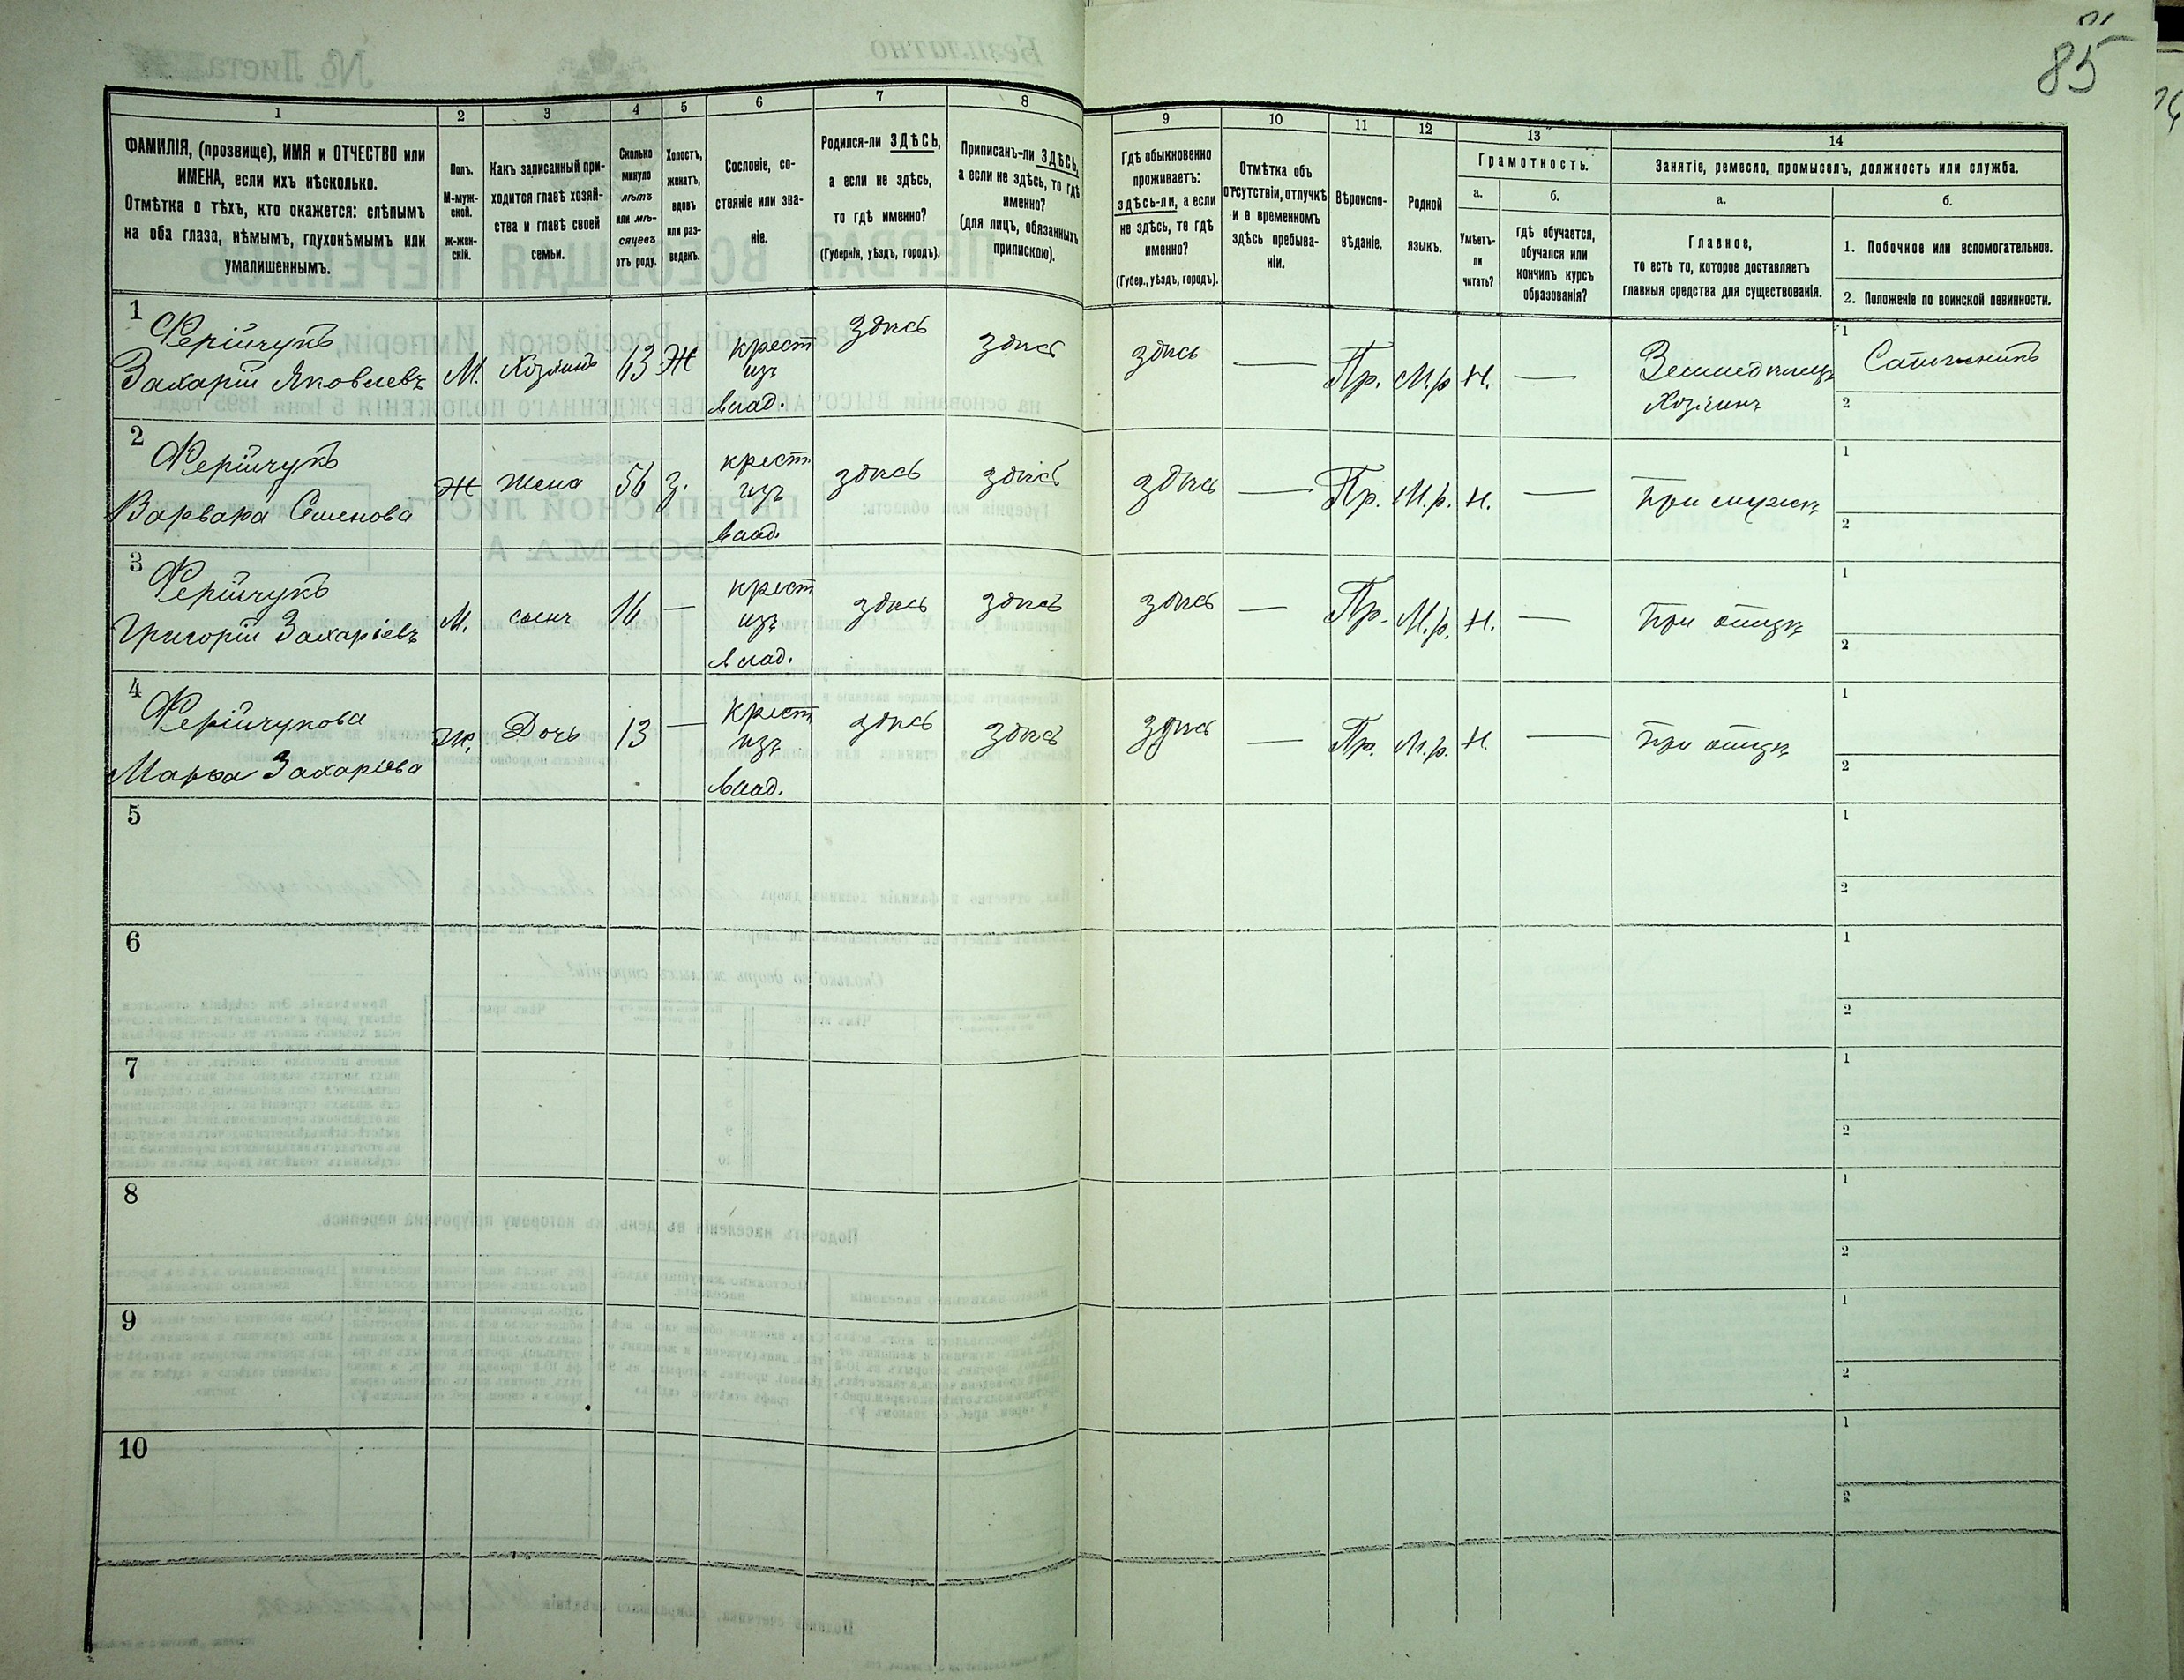 85
1 2 3 4 5 6 7 8 9 10 11 12 13 14
ФАМИЛІЯ, (прозвище), ИМЯ и ОТЧЕСТВО или
ИМЕНА, если ихъ нѣсколько.
Отмѣтка о тѣхъ, кто окажется: слѣпымъ
на оба глаза, нѣмымъ, глухонѣмымъ или
умалишеннымъ.
Полъ.
М-муж-
ской.
ж-жен-
скій.
Какъ записанный при-
ходится главѣ хозяй-
ства и главѣ своей
семьи.
Сколько
минуло
лѣтъ
или мѣ-
сяцевъ
отъ роду.
Холостъ,
женатъ,
вдовъ
или раз-
веденъ.
Сословіе, со-
стояніе или зва-
ніе.
Родился-ли ЗДѢСЬ,
а если не здѣсь,
то гдѣ именно?
(Губернія, уѣздъ, городъ).
Приписанъ-ли ЗДѢСЬ,
а если не здѣсь, то гдѣ
именно?
(для лицъ, обязанныхъ
припискою).
Гдѣ обыкновенно
проживаетъ:
здѣсь-ли, а если
не здѣсь, то гдѣ
именно?
(Губер., уѣздъ, городъ).
Отмѣтка объ
отсутствіи, отлучкѣ
и о временномъ
здѣсь пребыва-
ніи.
Вѣроиспо-
вѣданіе.
Родной
языкъ.
Грамотность.
а.
Умѣетъ-
ли
читать?
б.
гдѣ обучается,
обучался или
кончилъ курсъ
образованія?
Занятіе, ремесло, промыселъ, должность или служба.
а.
Главное,
то есть то, которое доставляетъ
главныя средства для существованія.
б.
1. Побочное или вспомогательное.
2. Положеніе по воинской повинности.
1
Ферійчукъ
Захарій Яковлевъ
М.
Хозяинъ
63
Ж
крест
изъ
влад.
здѣсь
здѣсь
здѣсь
—
Пр.
М.р
Н.
—
Земледѣлецъ
Хозяинъ
1
2
2
Ферійчукъ
Варвара Семенова
Ж
Жена
56
З.
крест
изъ
влад.
здѣсь
здѣсь
здѣсь
—
Пр.
М.р.
Н.
—
При мужѣ
1
2
3
Ферійчукъ
Григорій Захаріевъ
М.
сынъ
16
—
крест
изъ
влад.
здѣсь
здѣсь
здѣсь
—
Пр.
М.р.
Н.
—
При отцѣ
1
2
4
Ферійчукова
Марѳа Захаріева
Ж.
Дочь
13
—
крест
изъ
влад.
здѣсь
здѣсь
здѣсь
—
Пр.
М.р.
Н.
—
При отцѣ
1
2
5
1
2
6
1
2
7
1
2
8
1
2
9
1
2
10
1
2